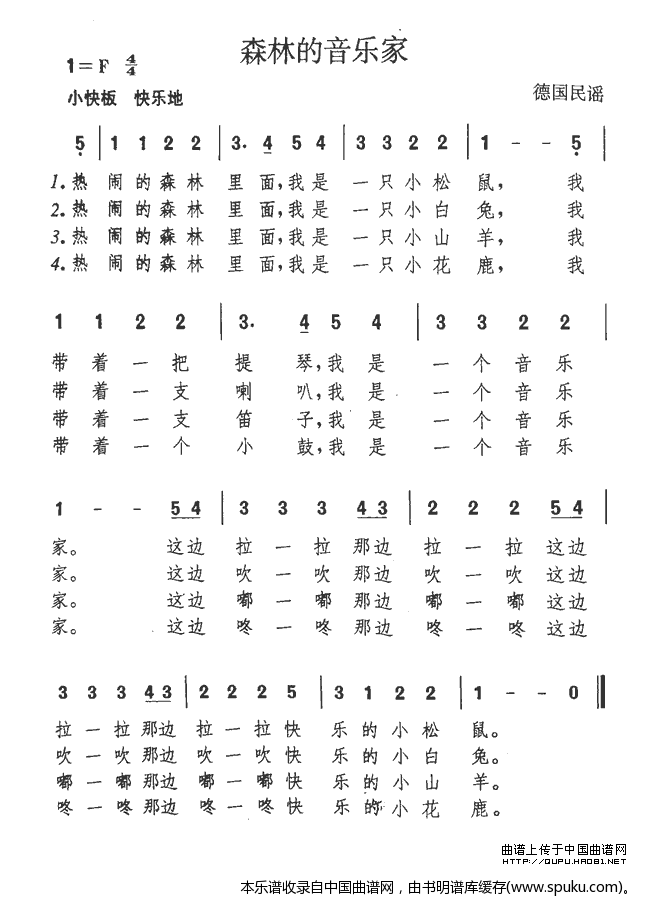 森林的音乐家
1=F 4/4
小快板 快乐地
德国民谣
5 | 1 1 2 2 | 3. 4 5 4 | 3 3 2 2 | 1 - - 5 |
1.热 闹的森林 里面,我是 一只小松 鼠, 我
2.热 闹的森林 里面,我是 一只小白 兔, 我
3.热 闹的森林 里面,我是 一只小山 羊, 我
4.热 闹的森林 里面,我是 一只小花 鹿, 我
1 1 2 2 | 3. 4 5 4 | 3 3 2 2 |
带着一把 提 琴,我是 一个音乐
带着一支 喇 叭,我是 一个音乐
带着一支 笛 子,我是 一个音乐
带着一个 小 鼓,我是 一个音乐
1 - - 5 4 | 3 3 3 4 3 | 2 2 2 5 4 |
家。 这边 拉一拉那边 拉一拉这边
家。 这边 吹一吹那边 吹一吹这边
家。 这边 嘟一嘟那边 嘟一嘟这边
家。 这边 咚一咚那边 咚一咚这边
3 3 3 4 3 | 2 2 2 5 | 3 1 2 2 | 1 - - 0 ‖
拉一拉那边 拉一拉快 乐的小松 鼠。
吹一吹那边 吹一吹快 乐的小白 兔。
嘟一嘟那边 嘟一嘟快 乐的小山 羊。
咚一咚那边 咚一咚快 乐的小花 鹿。
曲谱上传于中国曲谱网
HTTP://QUPU.HAO81.NET
本乐谱收录自中国曲谱网,由书明谱库缓存(www.spuku.com)。